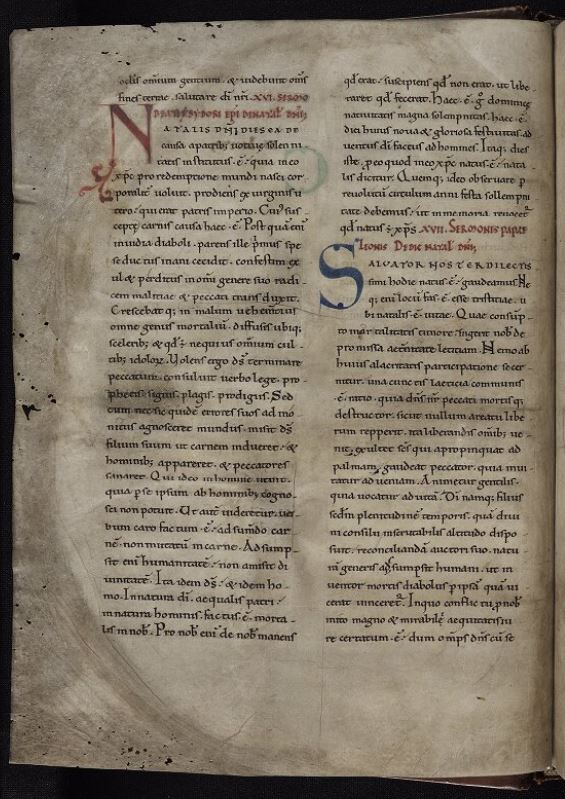 oculis omnium gentium. & uidebunt om̅s
fines terrae. salutare di̅ nr̅i. XVI. SERMO
DE NATALI DN̅I
NATALIS DN̅I DIES EA DE
causa a patrib; uotiuę solem ni
tatis institutus .ē. quia in eo
xp̅c pro redemptione mundi nasci cor
poralit̅ uoluit. prodiens ex uirginis u
tero. qui erat patris imperio. Cui' sus
ceptę carnis causa haec .ē. Post quā eni̅
inuidia diaboli. parens ille p̅mus spe
se ductus inani cecidit. confestim ex
ul & perditus in omni genere suo radi
cem malitiae & peccati transduxit.
Crescebatq; in malum uehementius
omne genus mortaliu̅. diffusis ubiq;
scelerib; & qd̅ est nequius omnium cul
tib; idoloru̅. Uolens ergo ds̅ terminare
peccatum. consuluit uerbo lege. pro
phetis. signis. plagis. prodigiis. Sed
cum nec sic quidē errores suos ad mo
nitus agnosceret mundus. misit ds̅
filium suum ut carnem indueret. &
hominib; appareret. & peccatores
sanaret. Qui ideo in homine uenit.
quia p se ipsum ab hominib; cogno
sci non potuit. Ut aut̅ uideretur. uer
bum caro factum .ē. adsum̅do car
nē. non mutatu̅ in carne. Adsump
sit eni̅ humanitatē. non amisit di
uinitatē. Ita idem ds̅. & idem ho
mo. In natura di̅. aequalis patri.
in natura hominis. factus .ē. morta
lis in nob̅. Pro nob̅ eni̅ de nob̅ manens
qd̅ erat. suscipiens qd̅ non erat. ut libe
raret qd̅ fecerat. Haec .ē. g̊ dominicę
natiuitatis magna solempnitas. haec .ē.
diei huius noua & gloriosa festiuitas. ad
uentus di̅ factus ad homines. Itaq; dies
iste. p eo quod in eo xp̅c natus .ē. nata
lis dicitur. Quemq; ideo obseruare p
reuoluti circulum anni festa sollempni
tate debemus. ut in memoria reuocet̅
qd̅ natus ē xp̅s. XVII. SERMO NIS PAPAE
LEONIS DE DIE NATAL̅ DN̅I.
SALUATOR NOSTER DILECTIS
simi hodie natus .ē. gaudeamus. Ne
q; eni̅ locu̅ fas .ē. esse tristitiae. u
bi natalis .ē. uitae. Quae consu̅p
to mortalitatis timore. ingerit nob̅ de
promissa aet̅nitate letitiam. Nemo ab
huius alacritatis participatione secer
nitur. una cunctis laeticia communis
.ē. ratio. quia dn̅s nr̅ peccati mortisq;
destructor. sicut nullum a reatu libe
rum repperit. ita liberandis om̅ib; ue
nit. exultet sc̅s qui appropinquat ad
palmam. gaudeat peccator. quia inui
tatur ad ueniam. Animetur gentilis.
quia uocatur ad uitā. Di̅ namq; filius
scdm̅ plenitudinē temporis. quā diui
ni consilii inscrutabilis altitudo dispo
suit. reconciliandā auctori suo. natu
ra̅ generis adsumpsit humani. ut in
uentor mortis diabolus p ipsā quā ui
cerat uinceret̅. In quo conflictu p nob̅
inito magno & mirabilę aequitatis iu
re certatum .ē. dum om̅ps dn̅s cu̅ se